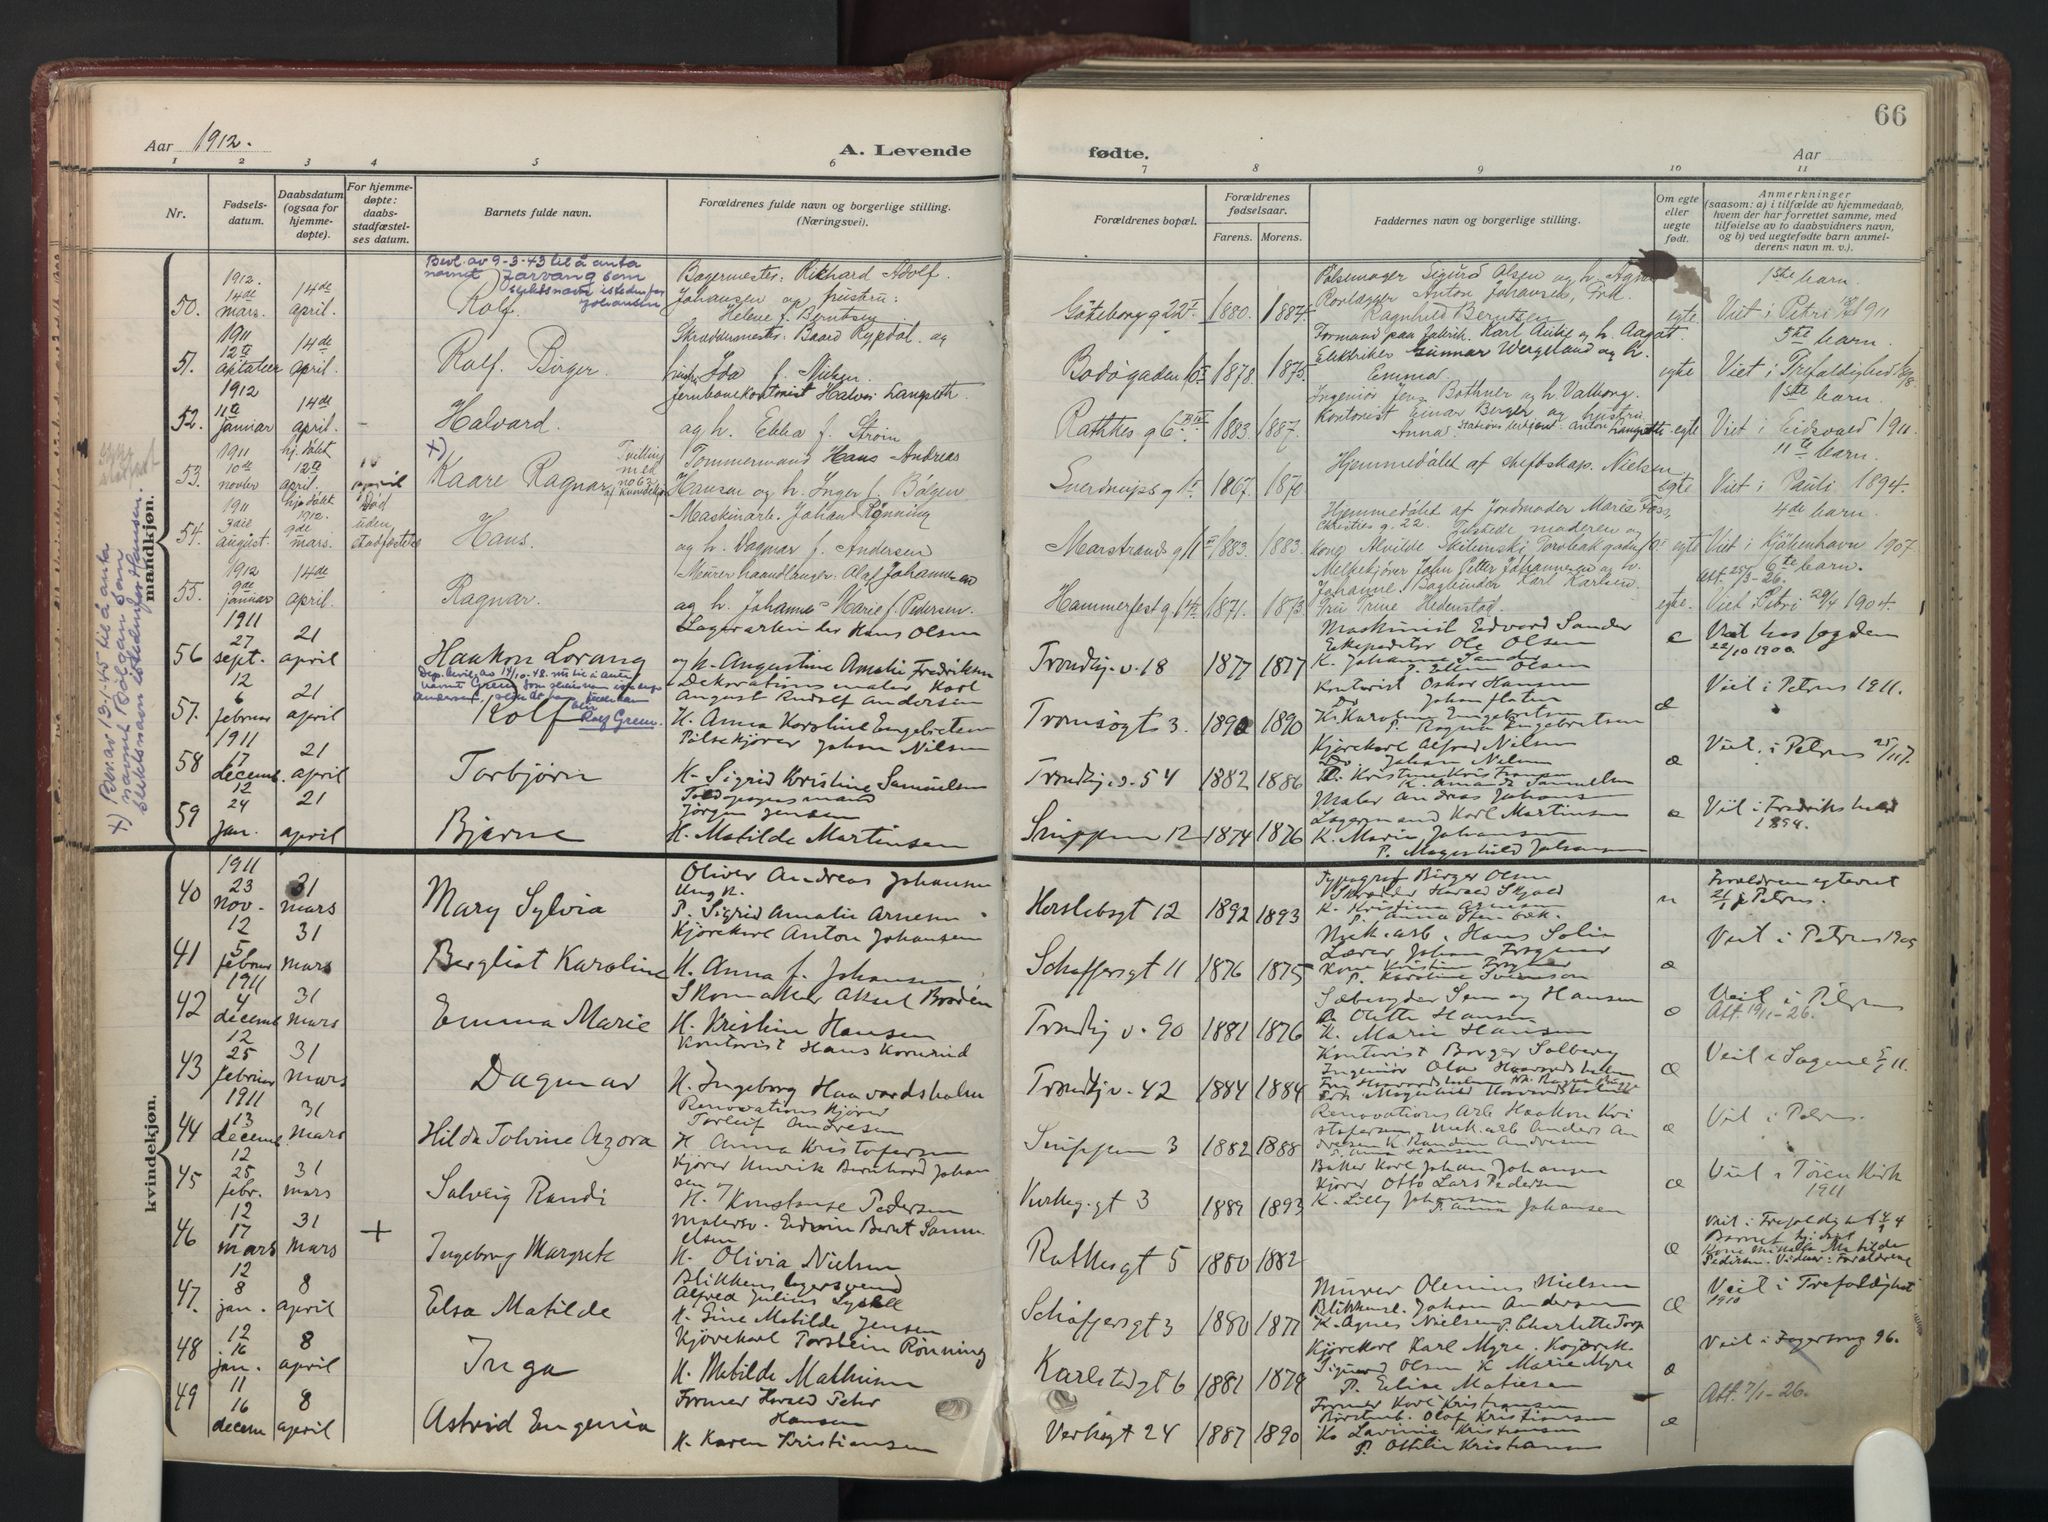 66
Aar 1912. A. Levende fødte. Aar
1 2 3 4 5 6 7 8 9 10 11
Nr.
Fødsels-
datum.
Daabsdatum
(ogsaa for
hjemme-
døpte).
For hjemme-
døpte:
daabs-
stadfæstel-
ses datum.
Barnets fulde navn.
Forældrenes fulde navn og borgerlige stilling.
(Næringsvei).
Forældrenes bopæl.
Forældrenes
fødselsaar.
Farens. Morens.
Faddernes navn og borgerlige stilling.
Om egte
eller
uegte
født.
Anmerkninger
(saasom: a) i tilfælde av hjemmedaab,
hvem der har forrettet samme, med
tilføielse av to daabsvidners navn,
og b) ved uegtefødte barn anmel-
derens navn m. v.).
mandkjøn.
kvindekjøn.
+) Bev. av 13-1-45 til å anta
navnet Bölgan som
slektsnavn istedenfor Hansen.
Bevl. av 9-3-43 til å anta
navnet Jarvang som
slektsnavn istedenfor
Johansen
50. 1912. 14de mars. 14de april. Rolf.
Bagermester Rikhard Adolf
Johansen og hustru:
Helene f. Berntsen
Göteborg g 22 I 1880. 1884.
Pølsemager Sigurd Olsen og h. Agnes
Anton Johansen, Frk.
Ragnhild Berntsen
egte. 1ste barn.
Viet i Petri 1911
51. 1911 12te 14de april. Rolf Birger.
Skræddermester Baard Rypdal og
hustru Ida f. Nielsen.
Bodøgaden 1878. 1875.
Formand paa fabrik. Karl Anke og h. Aagot.
Elektriker Gunnar Wergeland og h.
Emma
egte 5te barn.
Viet i Trefoldighed
52. 1912 11te januar 14de april. - Halvard.
Jernbanekontorist Halvor Langseth
og h. Ebba f. Strøm
Rathkes g 6 1883. 1887.
Ingeniør Jens Bothner og h. Valborg.
Kontorist Einar Berger og hustru
Anna. Anton Langseth
egte 1ste barn.
Viet i Eidsvold 1911.
53. 1911 10de novber hj. døbt 12te april. april
+) Kaare Ragnar
Tvilling
med
no 63
Tømmermand Hans Andreas
Hansen og h. Inger f. Bölgen
Sverdrups g 1 1867. 1870
Hjemmedøbt af distriktskap. Nielsen
egte 11te barn.
Viet i Pauli 1894.
54. 1911 3die august. hjdøbt 1912. 9de mars. Død uden stadfæstelse Hans.
Maskinarb. Johan Rønning
og h. Dagmar f. Andersen
Marstrands g 11 1883. 1883.
Hjemmedøbt af Jordmoder Marie Foss,
Christies g. 22. Tilstede moderen og
kone Alvilde
egte 4de barn.
Viet i Kjøbenhavn 1907.
55. 1912 9de januar 14de april. Ragnar.
Murerhaandlanger: Olaf Johannesen
og h. Johanne Marie f. Pedersen.
Hammerfest g. 1871. 1873
Melkekjører John Petter Johannesen og h.
Johanne. Bogbinder Karl Karlsen.
Fru Trine Hedenstad.
egte. 6te barn.
Att. 25/3-26.
Viet i Petri 29/4 1904.
56 1911 27 sept. 21 april Haakon Lorang
Lagerarbeider Hans Olsen
og h. Augustine Amalie Fredriksen
Trondhj. v. 18 1877 1877
Maskinist Edvard Sander
Ekspeditør Ole Olsen
K. Johanne Sander
P. Ellen Olsen
e Viet hos fogden
22/10 1900.
57. 12 6 februar 21 april Rolf
Rolf Green.
Dekorationsmaler Karl
August Rudolf Andersen
H. Anna Karoline Engebretsen
Tromsøgt 3. 1890 1890
Kontorist Oskar Hansen
Do Johan Floten
K. Karoline Engebretsen
P. Ragna Engebretsen
æ Viet i Petrus 1911.
58 1911 17 decemb. 21 april Torbjørn
Pølsekjører Johan Nilsen
H. Sigrid Kristine Samuelsen
Trondhj. v. 54 1882 1886
Kjørekarl Alfred Nilsen
Do. Johan Nilsen
K. Kristine Kristiansen
K. Amanda Samuelsen
æ Viet i Petrus
59 12 24 jan. 21 april Bjarne
Jørgen Jensen
H. Matilde Martinsen
Snippen 12 1874 1876
Maler Andreas Johansen
Lagermand Karl Martinsen
K. Marie Johansen
P. Magnhild Johansen
e Viet i Fredrikshald
1894.
40 1911 23 nov. 31 mars Mary Sylvia
Oliver Andreas Johansen
Ungk.
P. Sigrid Amalie Arnesen
Herslebsgt 12 1892 1893
Typograf Birger Olsen
Skrædder Harald Skjold
K. Kristine Arnesen
P. Anna Stenbæk.
u Forældrene egteviet
i Petrus.
41 12 5 februar 31 mars Bergliot Karoline
Kjørekarl Anton Johansen
H. Anna f. Johansen
Schøffersgt 11 1876 1875
Mek. arb. Hans Solie
Lærer Johan Frogner
Kone Kristine Frogner
P. Karoline Svensson
æ Viet i Petrus 1905
42 1911 4 decemb 31 mars Emma Marie
Skomaker Aksel Brodén
H. Kristine Hansen
Trondhj v. 90 1881 1876
Sæbesyder Simen og Hansen
P. Olette Hansen
K. Marie Hansen
e Viet i Petrus
Att. 19/11-26.
43 12 25 februar 31 mars Dagmar
Kontorist Hans Kornerud
H. Ingeborg Haavardsholm
Trondhj v. 42 1884 1884
Kontorist Borger Solberg
Ingeniør Olav Haavardsholm
æ Viet i Sagene 5/1 11.
44 1911 13 decemb. 31 mars Hilda Tolvine Azora
Renovationskjører
Torleif Andresen
H Anna Kristofersen
Snippen 3 1882 1888
Renovations arb Haakon Kri
stofersen, mek. arb Anders An
dresen K. Randine Andresen
P. Anna Hansen
æ Viet i Petrus.
45 12 25 febr. 31 mars Solveig Randi
Kjører Henrik Bernhard Johan
sen
H. Konstanse Pedersen
Kirkeg. gt 3 1889 1893
Baker Karl Johan Johansen
Kjører Otto Lars Pedersen
K. Lilly Johansen
P. Anna Johansen
æ Viet i Tøien Kirke
1911
46 12 17 mars 31 mars + Ingeborg Margrete
Malersv. Edvin Bernt Samu
elsen
H. Olivia Nielsen
Rathkesgt 5 1880 1882
æ Viet i Trefoldigh
Barnet hj. døpt
Kone Matilde
Pedersen. Vidner: Forældrene
47. 12 8 jan. 8 april Elsa Matilde
Blikkenslagersvend
Alfred Julius Lydell
H. Gine Matilde Jensen
Schøffersgt 3 1880 1877
Murer Olenius Nielsen
Blikkensl. Johan Andersen
K. Agnes Nielsen P. Charlotte Torp
æ Viet i Trefoldighet
1910
48 12 16 jan. 8 april Inga
Kjørekarl Torstein Rönning
H. Matilde Mathisen
Karlstadgt 6 1881 1879
Kjørekarl Karl Myre. Kjørek.
Sigurd Olsen K Marie Myre
P. Elise Matiesen
e Viet i Fagerborg 96.
49 11 16 decem 8 april Astrid Eugenia
Former Harald Peter
Hansen
H. Karen Kristiansen
Verksgt 24 1887 1890
Former Karl Kristiansen
Børstenb. Olaf Kristiansen
K. Lavinia Kristiansen
P. Ottilie Kristiansen
æ Att. 7/1-26.